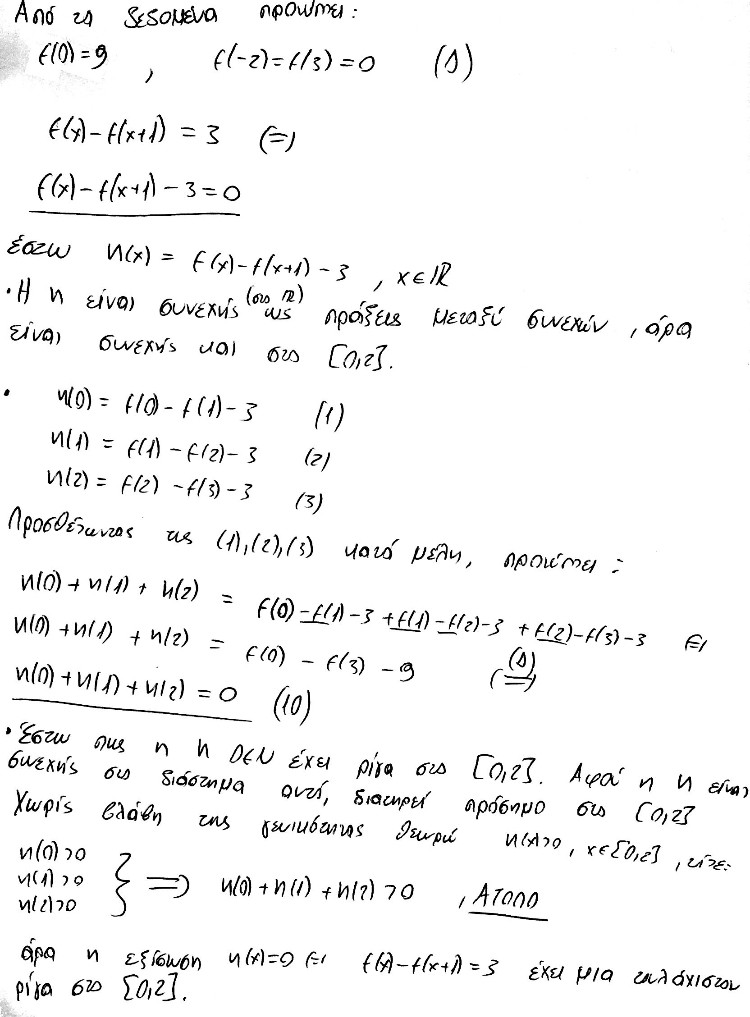 Από τα δεδομένα προκύπτει:
f(0)=9 , f(-2)=f(3)=0 (Δ)
f(x)-f(x+1) = 3 (=)
f(x)-f(x+1)-3=0
Έστω h(x) = f(x)-f(x+1)-3 , x∈ℝ
• Η h είναι συνεχής (στο ℝ) ως πράξεις μεταξύ συνεχών, άρα
είναι συνεχής και στο [0,2].
• h(0) = f(0)-f(1)-3 (1)
h(1) = f(1)-f(2)-3 (2)
h(2) = f(2)-f(3)-3 (3)
Προσθέτωντας τις (1),(2),(3) κατά μέλη, προκύπτει:
h(0)+h(1)+h(2) = f(0)-f(1)-3+f(1)-f(2)-3+f(2)-f(3)-3 (=)
h(0)+h(1)+h(2) = f(0)-f(3)-9 (Δ) (=)
h(0)+h(1)+h(2)=0 (10)
• Έστω πως η h ΔΕΝ έχει ρίζα στο [0,2]. Αφού η h είναι
συνεχής στο διάστημα αυτό, διατηρεί πρόσημο στο [0,2]
Χωρίς βλάβη της γενικότητας θεωρώ h(x)>0, x∈[0,2], τότε:
h(0)>0
h(1)>0 } ⟹ h(0)+h(1)+h(2)>0 , ΑΤΟΠΟ
h(2)>0
άρα η εξίσωση h(x)=0 (=) f(x)-f(x+1)=3 έχει μια τουλάχιστον
ρίζα στο [0,2].